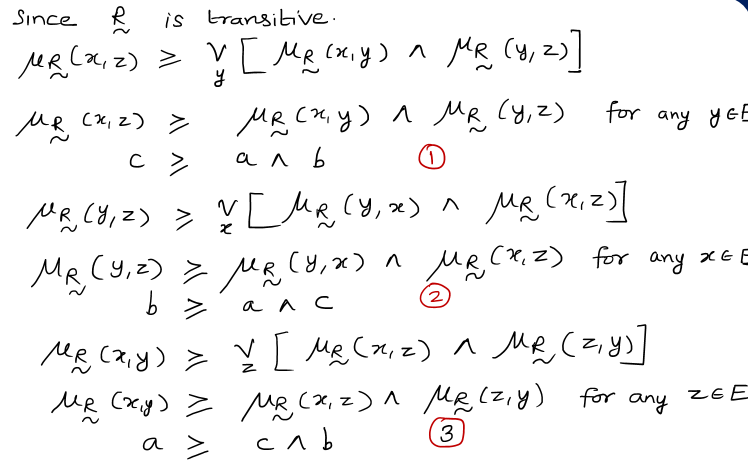 Since R̰ is transitive.
μ_R̰ (x, z) ≥ ∨_y [ μ_R̰ (x, y) ∧ μ_R̰ (y, z) ]
μ_R̰ (x, z) ≥ μ_R̰ (x, y) ∧ μ_R̰ (y, z) for any y ∈ E
c ≥ a ∧ b ①
μ_R̰ (y, z) ≥ ∨_x [ μ_R̰ (y, x) ∧ μ_R̰ (x, z) ]
μ_R̰ (y, z) ≥ μ_R̰ (y, x) ∧ μ_R̰ (x, z) for any x ∈ E
b ≥ a ∧ c ②
μ_R̰ (x, y) ≥ ∨_z [ μ_R̰ (x, z) ∧ μ_R̰ (z, y) ]
μ_R̰ (x, y) ≥ μ_R̰ (x, z) ∧ μ_R̰ (z, y) for any z ∈ E
a ≥ c ∧ b ③